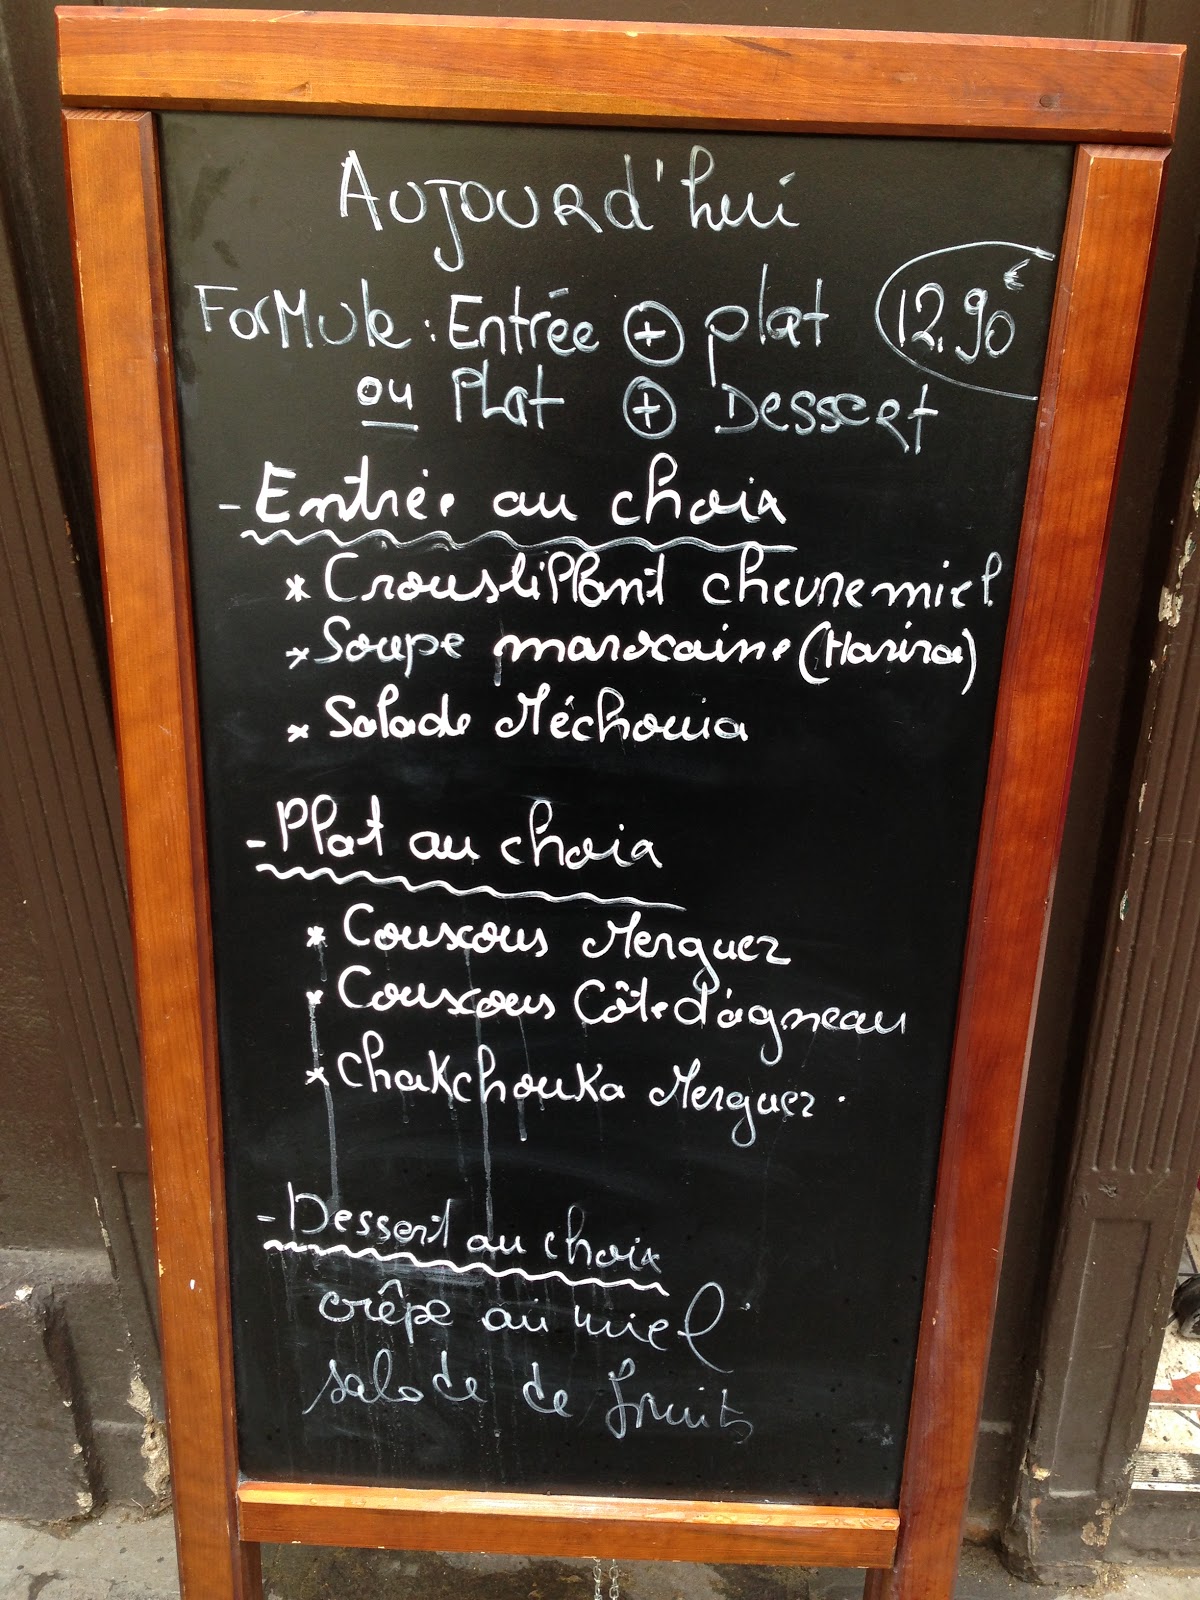 Aujourd'hui
Formule : Entrée + plat 12.90€
ou Plat + Dessert
- Entrée au choix
* Croustillant chevre miel
* Soupe marocaine (Harira)
* Salade Méchouia
- Plat au choix
* Couscous Merguez
* Couscous Côte d'agneau
* Chakchouka Merguez.
- Dessert au choix
crêpe au miel
salade de fruits